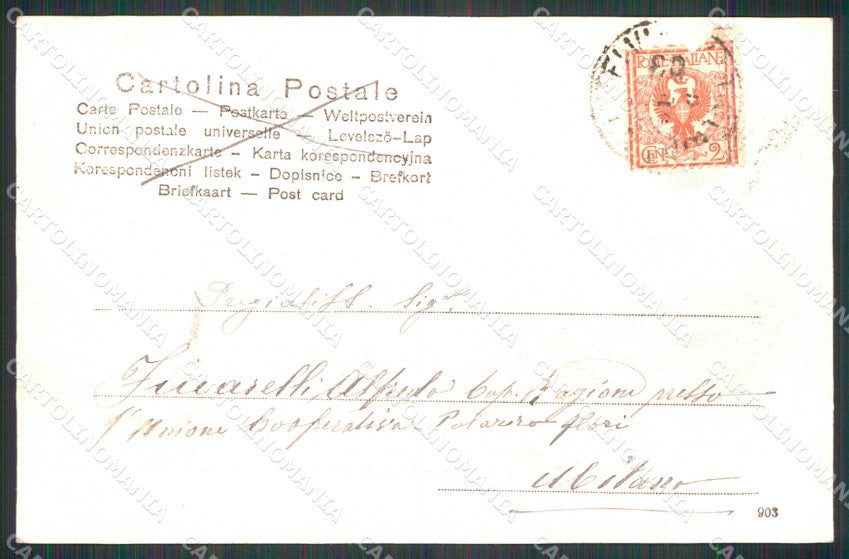 Cartolina Postale
Carte Postale — Postkarte — Weltpostverein
Union postale universelle — Levelező-Lap
Correspondenzkarte — Karta korespondencyjna
Korespondencni listek — Dopisnice — Brefkort
Briefkaart — Post card
POSTE ITALIANE
CENT. 2
Pregiatiss. Sigr.
Alfredo Cap. Ragion presso
l'Unione Cooperativa Palazzo Flori
Milano
903
CARTOLINOMANIA